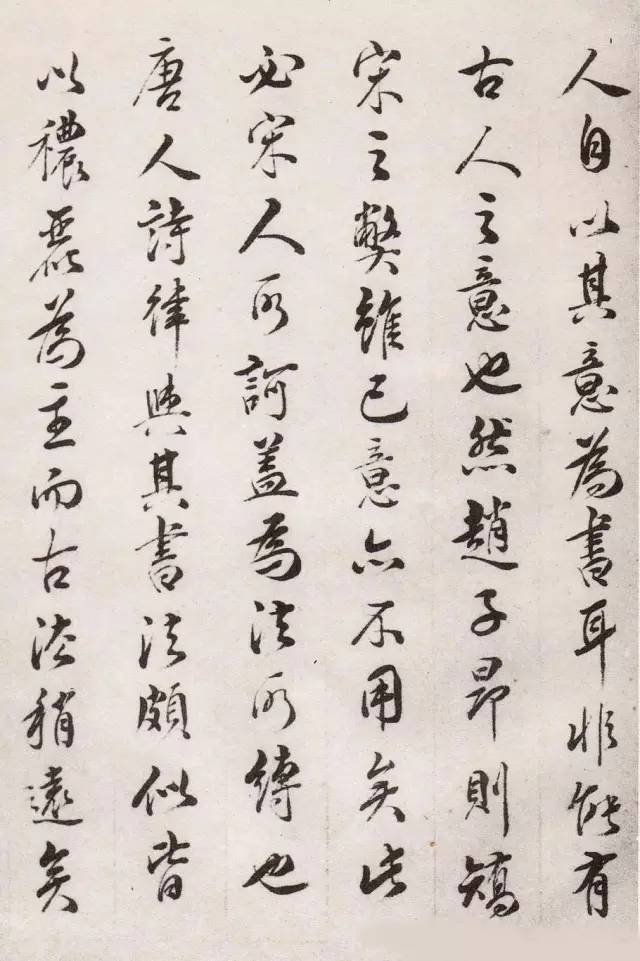 人自以其意為書耳非能有
古人之意也然趙子昂則矯
宋之弊雖己意亦不用矣此
必宋人所訶蓋為法所縛也
唐人詩律與其書法頗似皆
以穠麗為主而古法稍遠矣